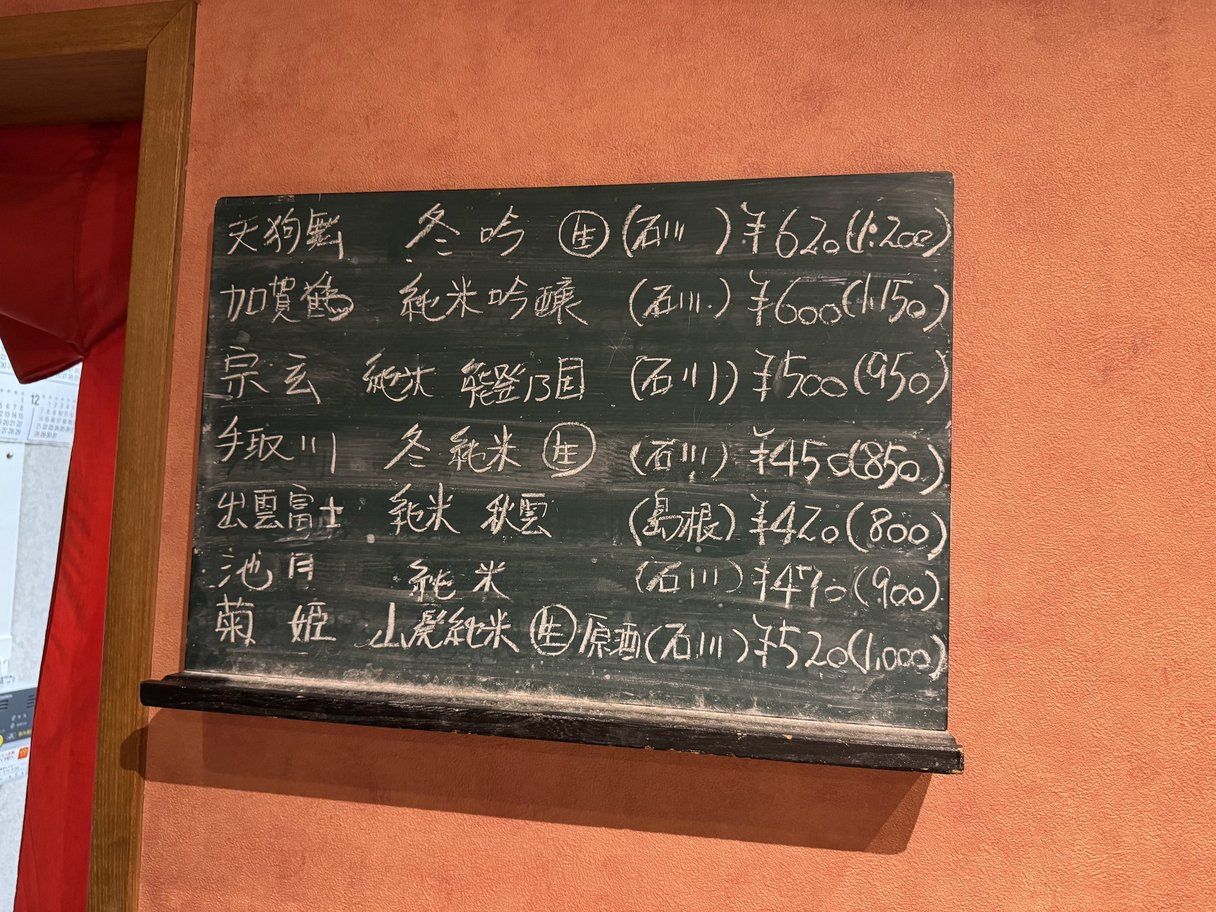 天狗舞 冬吟 ㊤生 (石川) ¥620(1,200)
加賀鶴 純米吟醸 (石川) ¥600(1,150)
宗玄 純米 能登乃国 (石川) ¥500(950)
手取川 冬純米 生 (石川) ¥450(850)
出雲富士 純米 秋雲 (島根) ¥420(800)
池月 純米 (石川) ¥470(900)
菊姫 山廃純米 生 原酒(石川) ¥520(1,000)
12